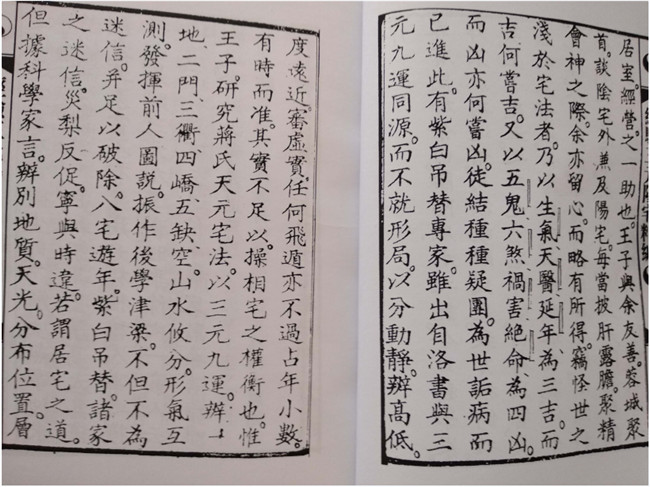 居室。經營之一助也。王子與余友善。蓉城聚
首。談陰宅外兼及陽宅。每當披肝露膽。聚精
會神之際。余亦留心。而略有所得。竊怪世之
淺於宅法者。乃以生氣天醫延年為三吉。而
吉何嘗吉。又以五鬼六煞禍害絕命為四凶。
而凶亦何嘗凶。徒結種種疑團。為世詬病而
已。進此。有紫白吊替專家。雖出自洛書。與三
元九運同源。而不就形局。以分動靜。辨高低。
度遠近。審虛實。任何飛遁。亦不過占年小數。
有時而准。其實不足以操相宅之權衡也。惟
王子。研究蔣氏天元宅法。以三元九運。辨一
地。二門三衢四嶠五缺空。山水攸分。形氣互
測。發揮前人圖説。振作後學津梁。不但不為
迷信。并足以破除八宅遊年。紫白吊替諸家
之迷信。災梨反促。寧與時違。若謂居宅之道。
但據科學家言。辨別地質。天光。分布位置層